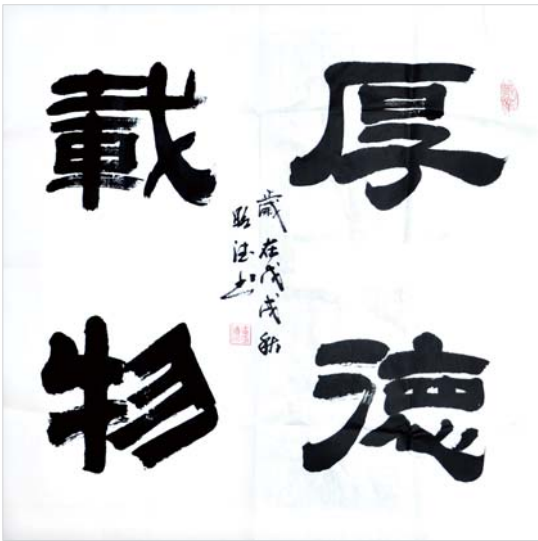 厚德
載物
歲在戊戌秋